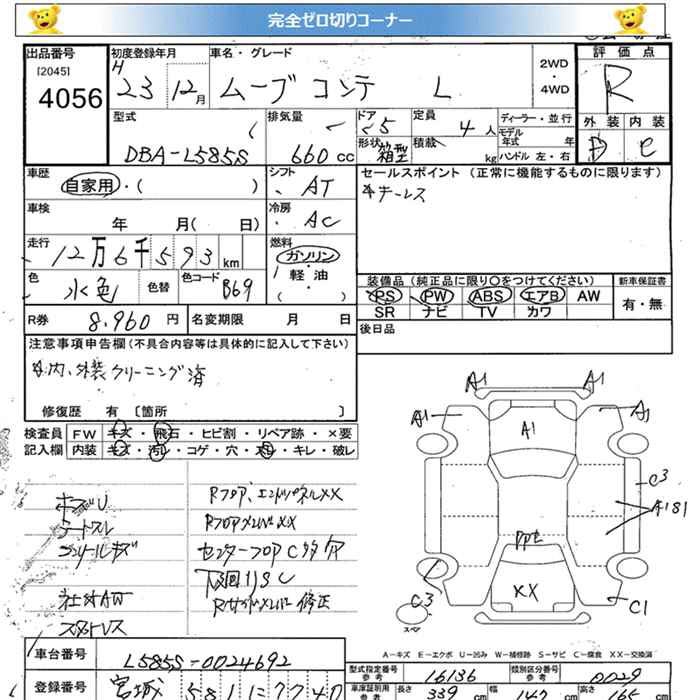 完全ゼロ切りコーナー
出品番号
[2045]
4056
初度登録年月
H
23 12月
車名・グレード
ムーブ コンテ L
2WD
・
4WD
評価点
R
外装 内装
D C
型式
DBA-L585S
排気量
660 cc
ドア
5
形状
箱型
定員
4人
積載
kg
ディーラー・並行
モデル
年式 年
ハンドル 左・右
車歴
自家用・( )
シフト
AT
セールスポイント (正常に機能するものに限ります)
キーレス
車検
年 月( 日)
冷房
AC
走行
12万6千593km
燃料
ガソリン
軽・油
( ・ )
色
水色
色替
色コード
B69
装備品 (純正品に限り○をつけてください)
新車保証書
PS PW ABS エアB AW
SR ナビ TV カワ
有・無
R券 8.960 円
名変期限 月 日
後日品
注意事項申告欄(不具合内容等は具体的に記入して下さい)
内、外装クリーニング済
修復歴 有 〔箇所 〕
検査員
記入欄
FW キズ・飛石・ヒビ割・リペア跡・×要
内装 キズ・汚レ・コゲ・穴・スレ・キレ・破レ
Rフロア、エンドパネルXX
RフロアメンバXX
センターフロアC多 穴
下回りSC
Rサイドメンバー修正
社外AW
A1 A1
A1 A1
A1
C3
A1B1
XX
C3
C1
スペア
A-キズ E-エクボ U-凹み W-補修跡 S-サビ C-腐食 XX-交換済
車台番号
L585S-0024692
登録番号
宮城 581
型式指定番号
参考
16136
類別区分番号
参考
0029
車庫証明用
参考
長さ
339 cm
幅
147 cm
高さ
165 cm